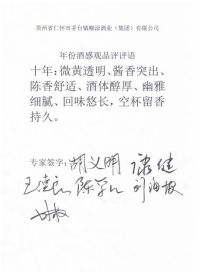 贵州省仁怀市茅台镇糊涂酒业（集团）有限公司
年份酒感观品评评语
十年：微黄透明、酱香突出、
陈香舒适、酒体醇厚、幽雅
细腻、回味悠长，空杯留香
持久。
专家签字：胡义明 康健